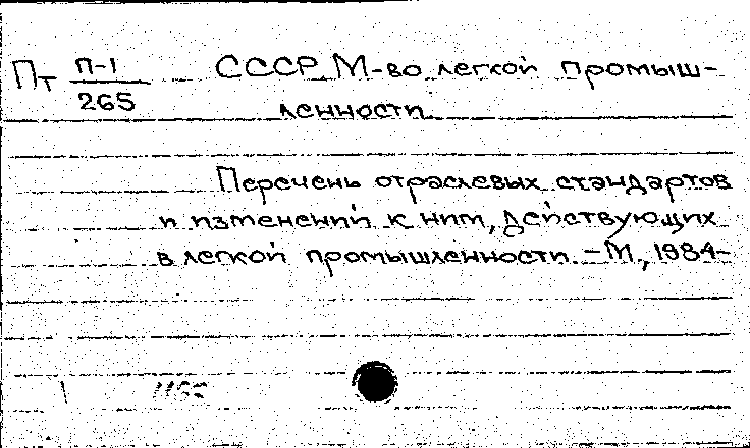 Пт П-1/265 СССР. М-во легкой промыш-
ленности.
Перечень отраслевых стандартов
и изменений к ним, действующих
в легкой промышленности. - М., 1984-